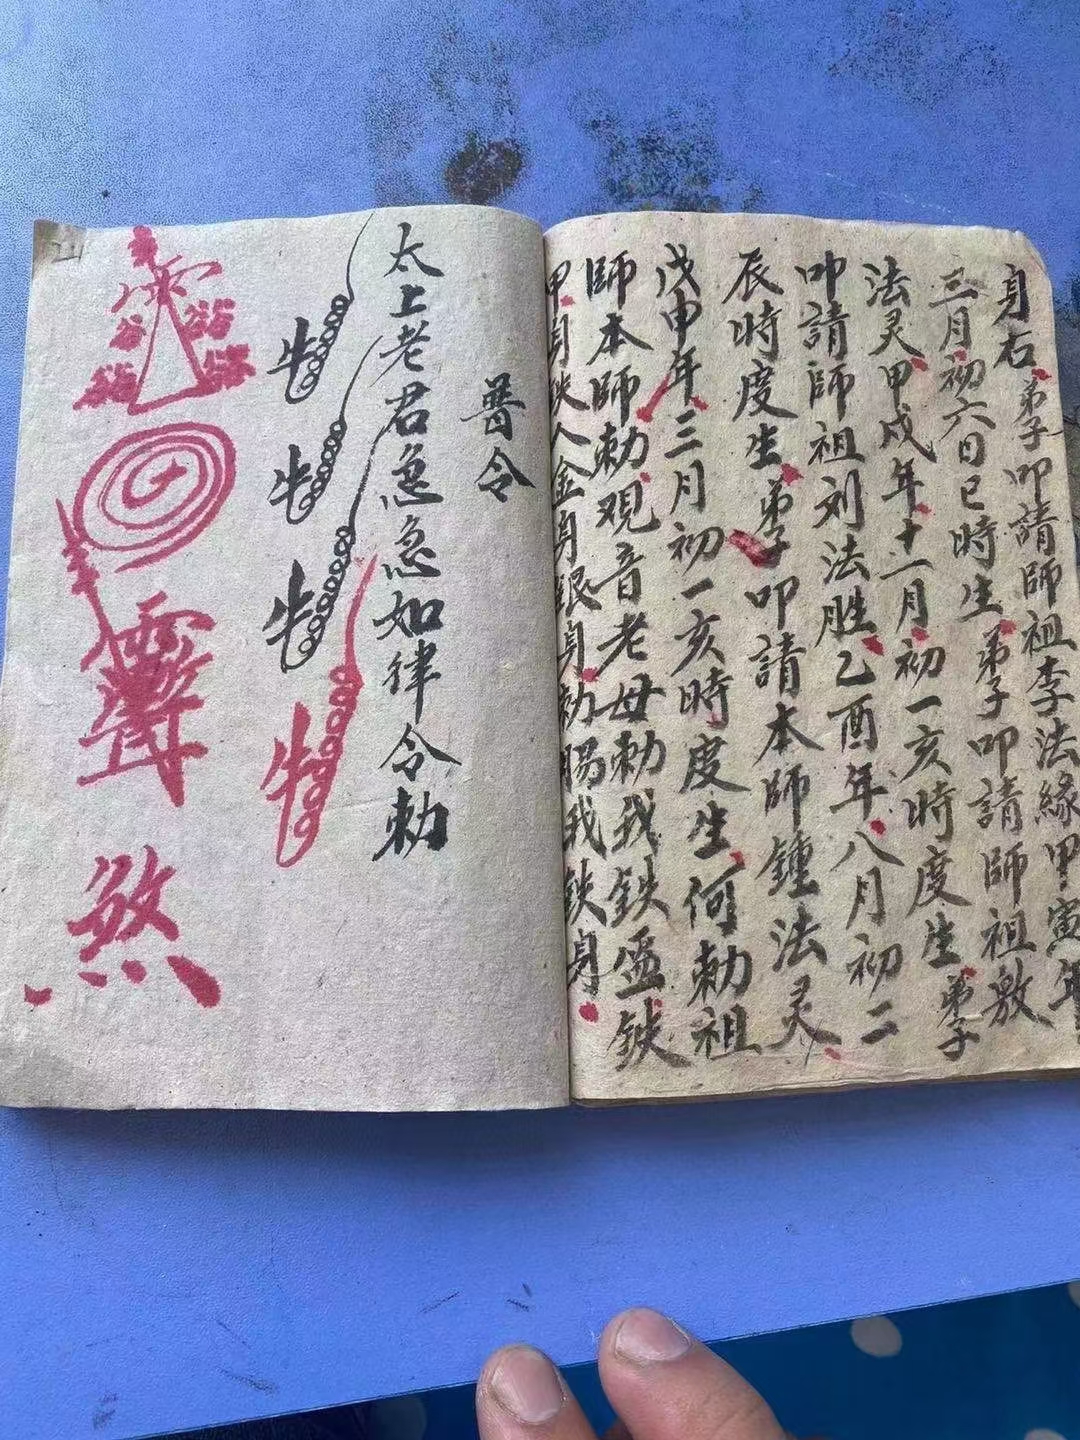 身右弟子叩請師祖李法緣甲寅年
三月初六日巳時生弟子叩請師祖敖
法灵甲戌年十二月初一亥時度生弟子
叩請師祖刘法胜乙酉年八月初二
辰時度生弟子叩請本師鍾法灵
戊申年三月初一亥時度生何勅祖
師本師勅观音老母勅我鉄盔鉄
甲身鉄人金身銀身勅賜我鉄身
普令
太上老君急急如律令勅
煞